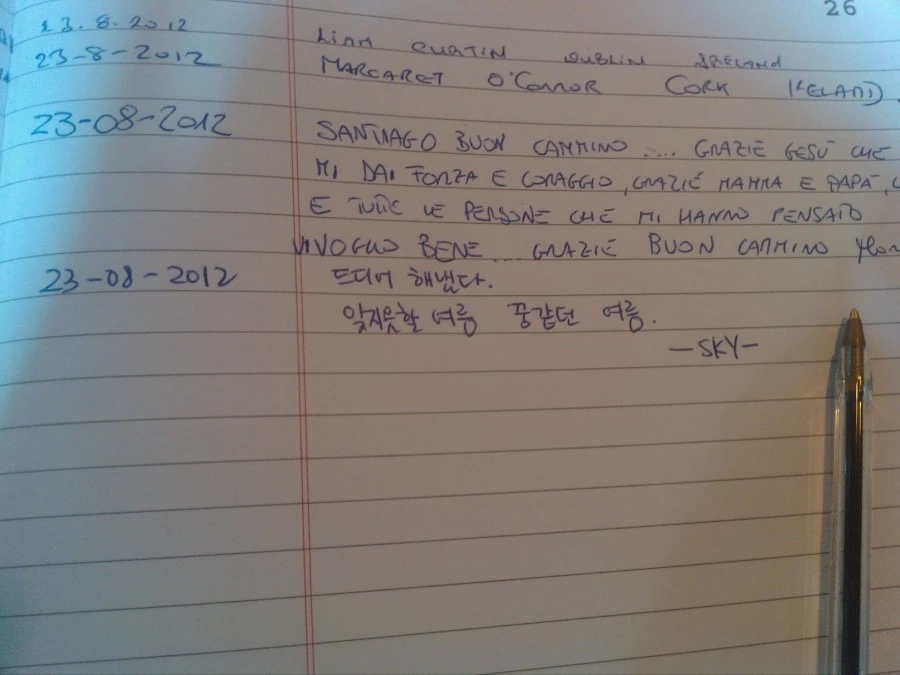 26
23.8.2012 LIAM CURTIN DUBLIN IRELAND
23-8-2012 MARGARET O'CONNOR CORK IRELAND
23-08-2012 SANTIAGO BUON CAMMINO .... GRAZIE GESÙ CHE
MI DAI FORZA E CORAGGIO, GRAZIE MAMMA E PAPA',
E TUTTE LE PERSONE CHE MI HANNO PENSATO
VI VOGLIO BENE ... GRAZIE BUON CAMMINO
23-08-2012 드디어 해냈다.
잊지못할 여름 꿈같던 여름.
-SKY-